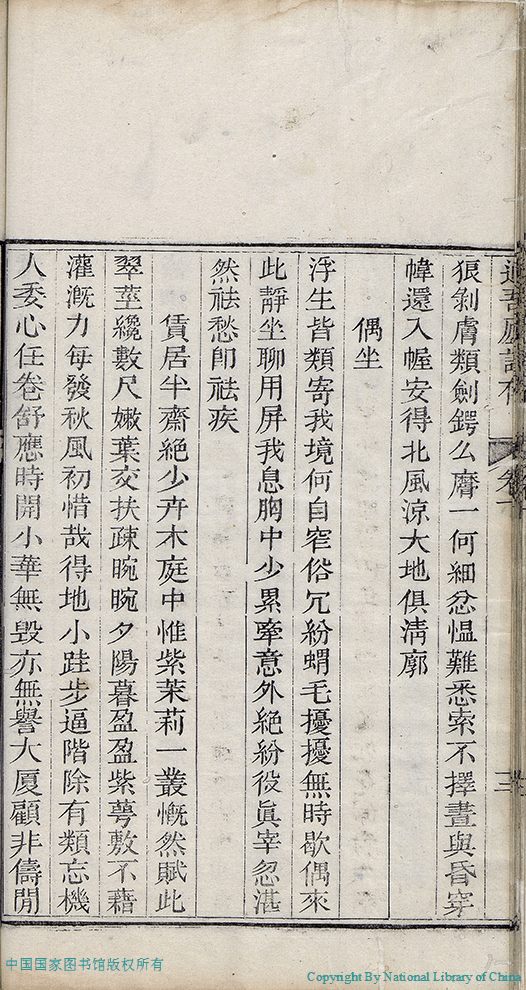 狠剝膚類劍鍔么麿一何細忿慍難悉索不擇晝與昏穿
幃還入幄安得北風涼大地俱淸廓
偶坐
浮生皆類寄我境何自窄俗冗紛蝟毛擾擾無時歇偶來
此靜坐聊用屏我息胸中少累牽意外絶紛役眞宰忽湛
然祛愁卽祛疾
賃居半齋絶少卉木庭中惟紫茉莉一叢慨然賦此
翠莖纔數尺嫩葉交扶疎晼晼夕陽暮盈盈紫萼敷不藉
灌漑力每發秋風初惜哉得地小跬步逼階除有類忘機
人委心任卷舒應時開小華無毀亦無譽大厦顧非儔閒
中国国家图书馆版权所有
Copyright By National Library of China